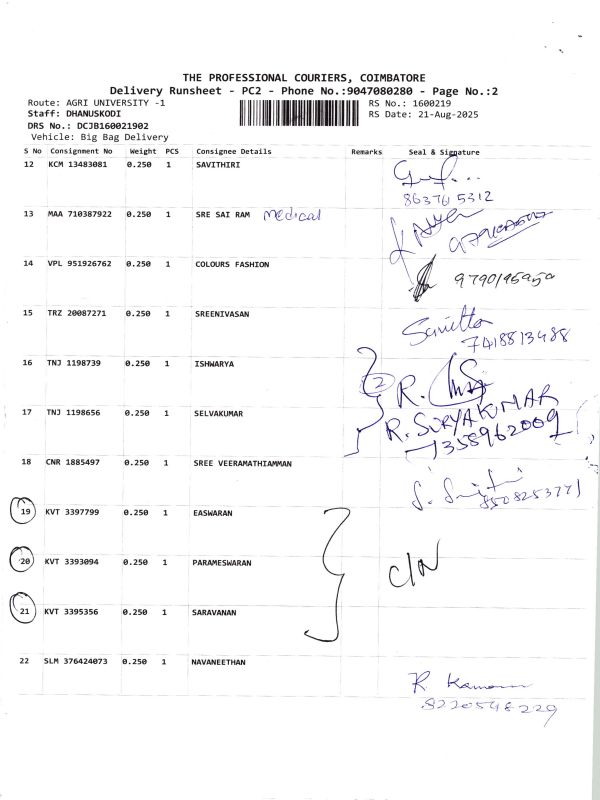 THE PROFESSIONAL COURIERS, COIMBATORE
Delivery Runsheet - PC2 - Phone No.:9047080280 - Page No.:2
Route: AGRI UNIVERSITY -1 RS No.: 1600219
Staff: DHANUSKODI RS Date: 21-Aug-2025
DRS No.: DCJB160021902
Vehicle: Big Bag Delivery
S No Consignment No Weight PCS Consignee Details Remarks Seal & Signature
12 KCM 13483081 0.250 1 SAVITHIRI
863765312
13 MAA 710387922 0.250 1 SRE SAI RAM Medical
14 VPL 951926762 0.250 1 COLOURS FASHION
15 TRZ 20087271 0.250 1 SREENIVASAN
Savitha
7418813488
16 TNJ 1198739 0.250 1 ISHWARYA
2 R.
17 TNJ 1198656 0.250 1 SELVAKUMAR
R. SURYAKUMAR
7358962009
18 CNR 1885497 0.250 1 SREE VEERAMATHIAMMAN
8508253771
19 KVT 3397799 0.250 1 EASWARAN
20 KVT 3393094 0.250 1 PARAMESWARAN
C/N
21 KVT 3395356 0.250 1 SARAVANAN
22 SLM 376424073 0.250 1 NAVANEETHAN
R
8220548229